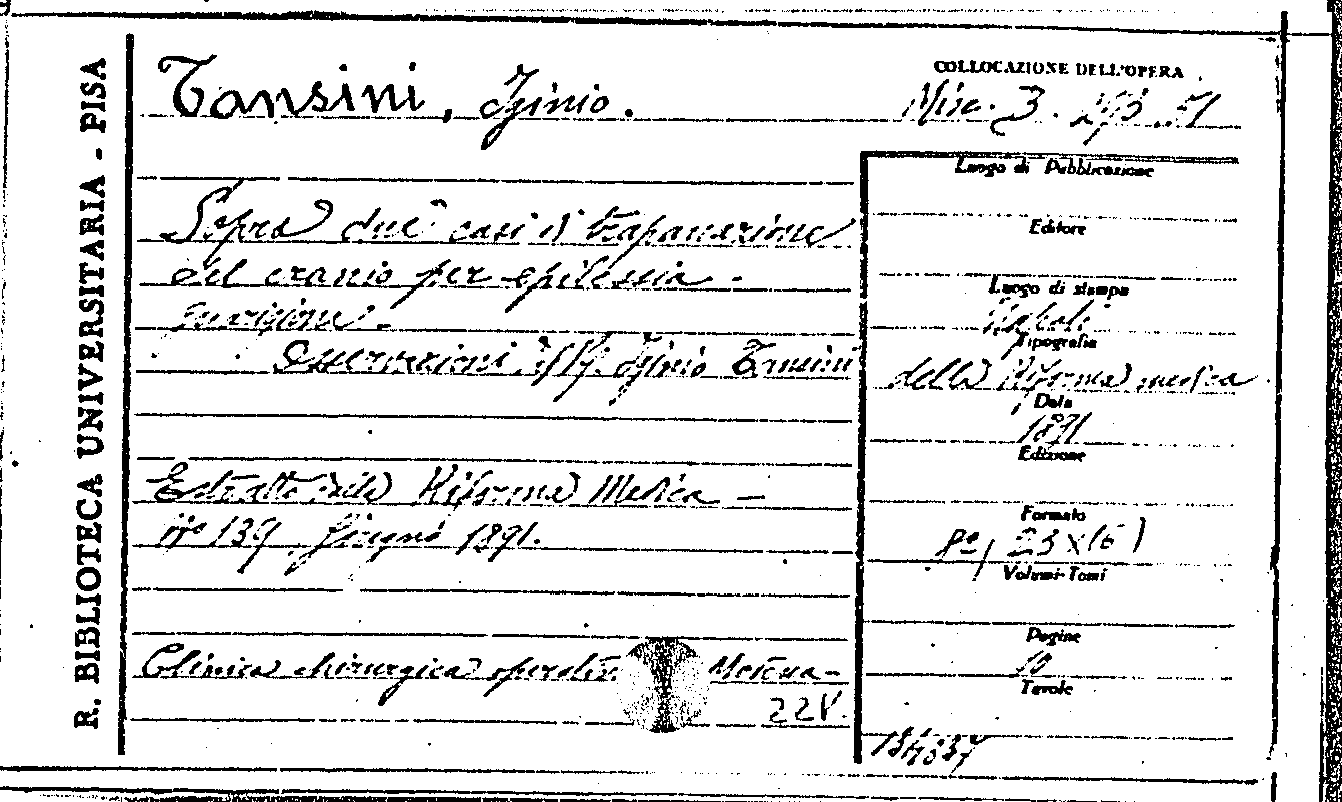 R. BIBLIOTECA UNIVERSITARIA - PISA
Tansini, Iginio.
COLLOCAZIONE DELL'OPERA
Misc. 3. 293. 51
Sopra due casi di trapanazione
del cranio per epilessia -
guarigione. -
Osservazioni Iginio Tansini
Estratto dalla Riforma Medica -
N° 139, Giugno 1891.
Clinica chirurgica operativa Modena -
22V.
Luogo di Pubblicazione
Editore
Luogo di stampa
Napoli
Tipografia
della Riforma medica
Data
1891
Edizione
Formato
8°, 23x(6)
Volumi-Tomi
Pagine
10
Tavole